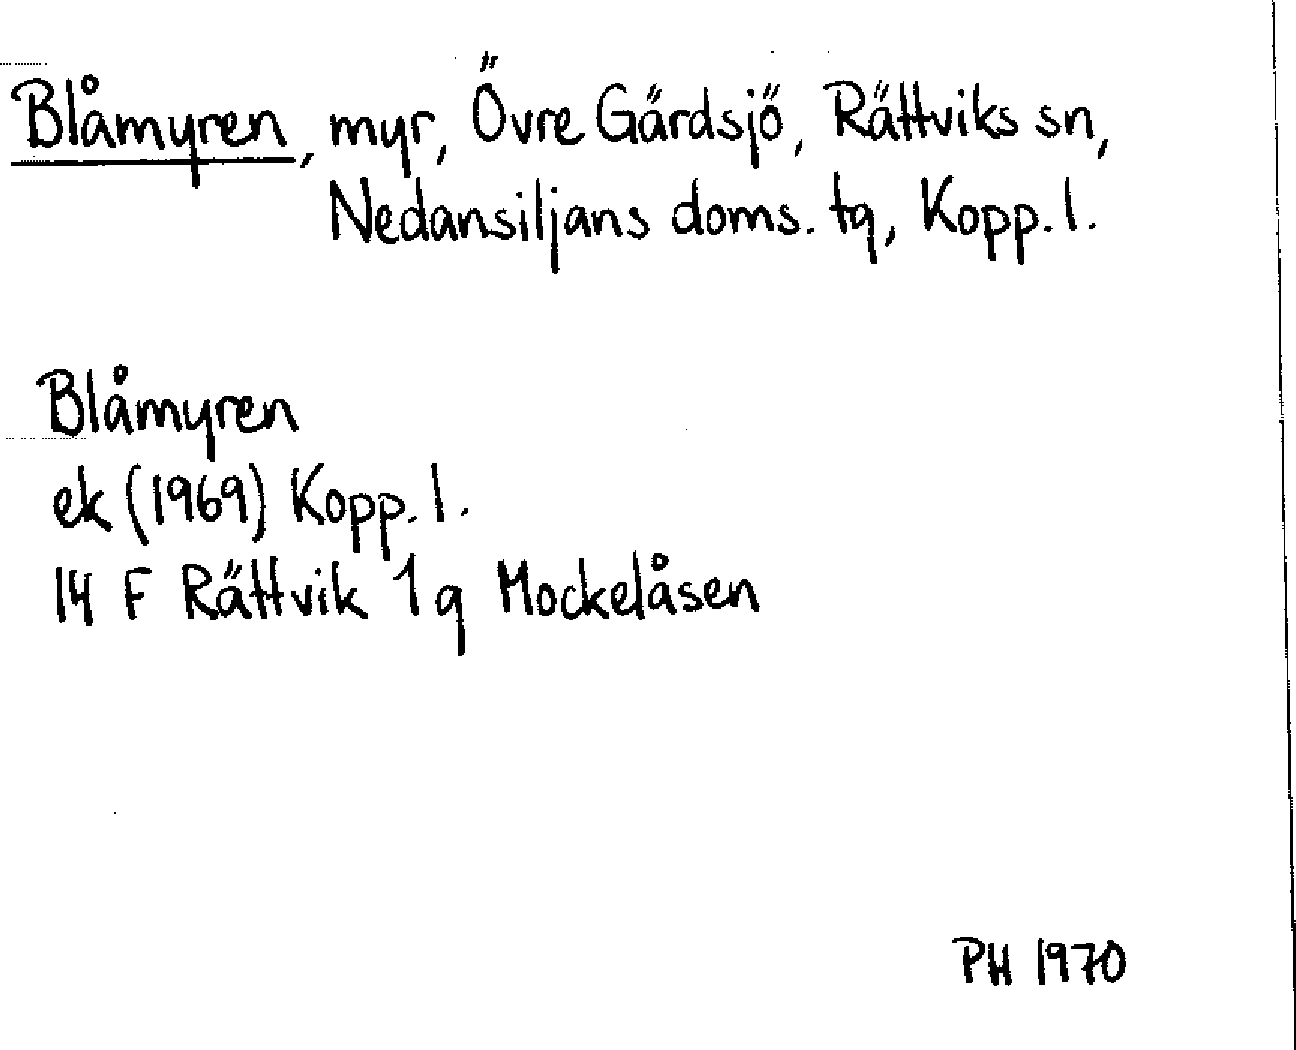 Blåmyren, myr, Övre Gärdsjö, Rättviks sn,
Nedansiljans doms. tg, Kopp. l.
Blåmyren
ek (1969) Kopp. l.
14 F Rättvik 1 g Mockelåsen
PH 1970